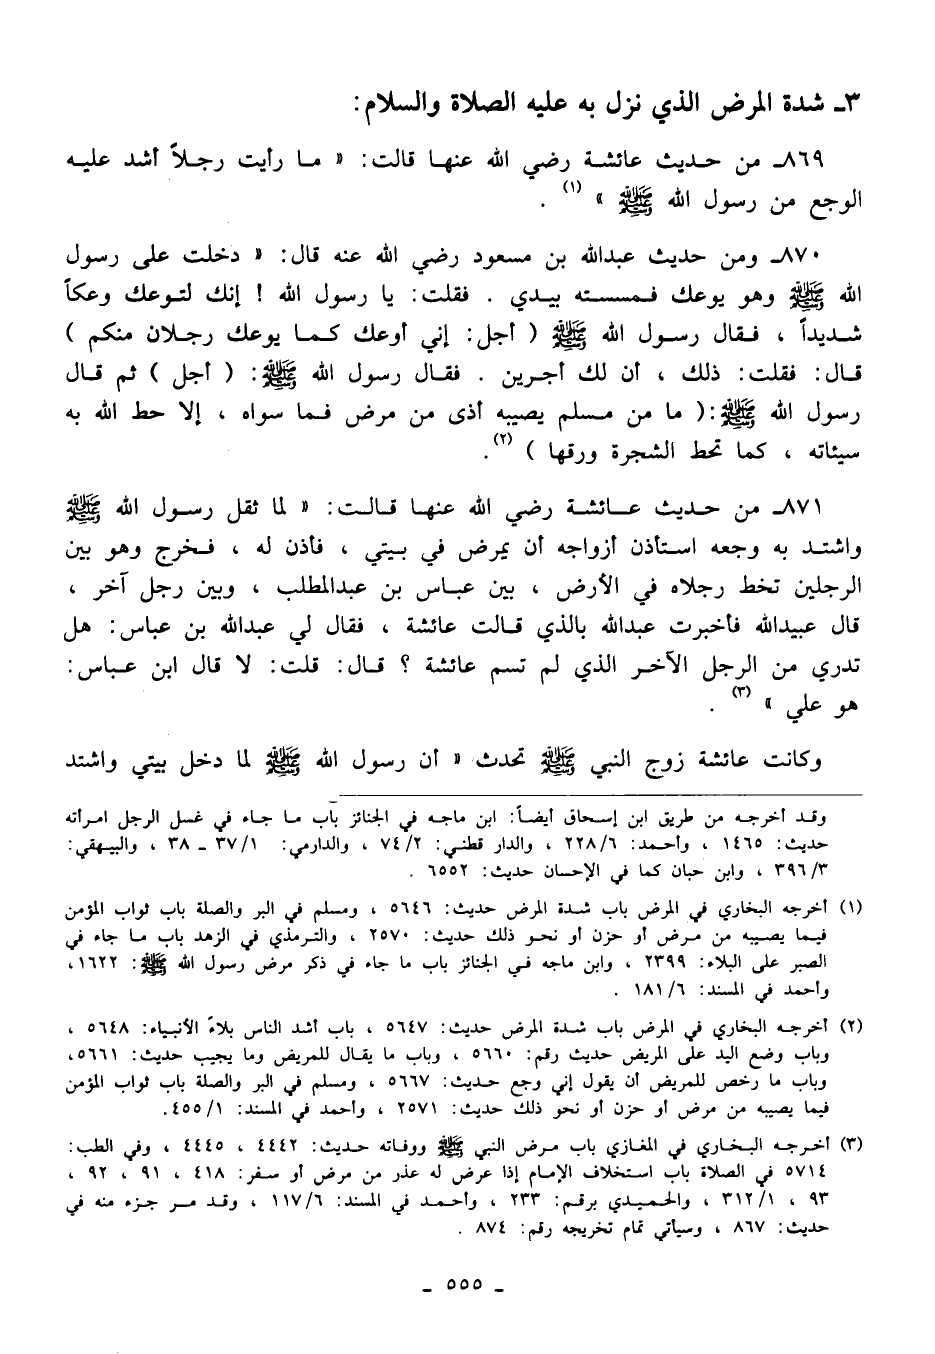 ٣ـ شدة المرض الذي نزل به عليه الصلاة والسلام:
٨٦٩ـ من حديث عائشة رضي الله عنها قالت: « ما رأيت رجلاً أشد عليه
الوجع من رسول الله ﷺ » (١) .
٨٧٠ـ ومن حديث عبدالله بن مسعود رضي الله عنه قال: « دخلت على رسول
الله ﷺ وهو يوعك فمسسته بيدي . فقلت: يا رسول الله ! إنك لتوعك وعكاً
شديداً ، فقال رسول الله ﷺ ( أجل: إني أوعك كما يوعك رجلان منكم )
قال: فقلت: ذلك ، أن لك أجرين . فقال رسول الله ﷺ: ( أجل ) ثم قال
رسول الله ﷺ:( ما من مسلم يصيبه أذى من مرض فما سواه ، إلا حط الله به
سيئاته ، كما تحط الشجرة ورقها ) (٢).
٨٧١ـ من حديث عائشة رضي الله عنها قالت: « لما ثقل رسول الله ﷺ
واشتد به وجعه استأذن أزواجه أن يمرض في بيتي ، فأذن له ، فخرج وهو بين
الرجلين تخط رجلاه في الأرض ، بين عباس بن عبدالمطلب ، وبين رجل آخر ،
قال عبيدالله فأخبرت عبدالله بالذي قالت عائشة ، فقال لي عبدالله بن عباس: هل
تدري من الرجل الآخر الذي لم تسم عائشة ؟ قال: قلت: لا قال ابن عباس:
هو علي » (٣) .
وكانت عائشة زوج النبي ﷺ تحدث « أن رسول الله ﷺ لما دخل بيتي واشتد
وقد أخرجه من طريق ابن إسحاق أيضاً: ابن ماجه في الجنائز باب ما جاء في غسل الرجل امرأته
حديث: ١٤٦٥ ، وأحمد: ٢٢٨/٦ ، والدار قطني: ٧٤/٢ ، والدارمي: ٣٧/١ ـ ٣٨ ، والبيهقي:
٣٩٦/٣ ، وابن حبان كما في الإحسان حديث: ٦٥٥٢ .
(١) أخرجه البخاري في المرض باب شدة المرض حديث: ٥٦٤٦ ، ومسلم في البر والصلة باب ثواب المؤمن
فيما يصيبه من مرض أو حزن أو نحو ذلك حديث: ٢٥٧٠ ، والترمذي في الزهد باب ما جاء في
الصبر على البلاء: ٢٣٩٩ ، وابن ماجه في الجنائز باب ما جاء في ذكر مرض رسول الله ﷺ: ١٦٢٢،
وأحمد في المسند: ١٨١/٦ .
(٢) أخرجه البخاري في المرض باب شدة المرض حديث: ٥٦٤٧ ، باب أشد الناس بلاءً الأنبياء: ٥٦٤٨ ،
وباب وضع اليد على المريض حديث رقم: ٥٦٦٠ ، وباب ما يقال للمريض وما يجيب حديث: ٥٦٦١،
وباب ما رخص للمريض أن يقول إني وجع حديث: ٥٦٦٧ ، ومسلم في البر والصلة باب ثواب المؤمن
فيما يصيبه من مرض أو حزن أو نحو ذلك حديث: ٢٥٧١ ، وأحمد في المسند: ٤٥٥/١.
(٣) أخرجه البخاري في المغازي باب مرض النبي ﷺ ووفاته حديث: ٤٤٤٢ ، ٤٤٤٥ ، وفي الطب:
٥٧١٤ في الصلاة باب استخلاف الإمام إذا عرض له عذر من مرض أو سفر: ٤١٨ ، ٩١ ، ٩٢ ،
٩٣ ، ٣١٢/١ ، والحميدي برقم: ٢٣٣ ، وأحمد في المسند: ١١٧/٦ ، وقد مر جزء منه في
حديث: ٨٦٧ ، وسيأتي تمام تخريجه رقم: ٨٧٤ .
ـ ٥٥٥ ـ